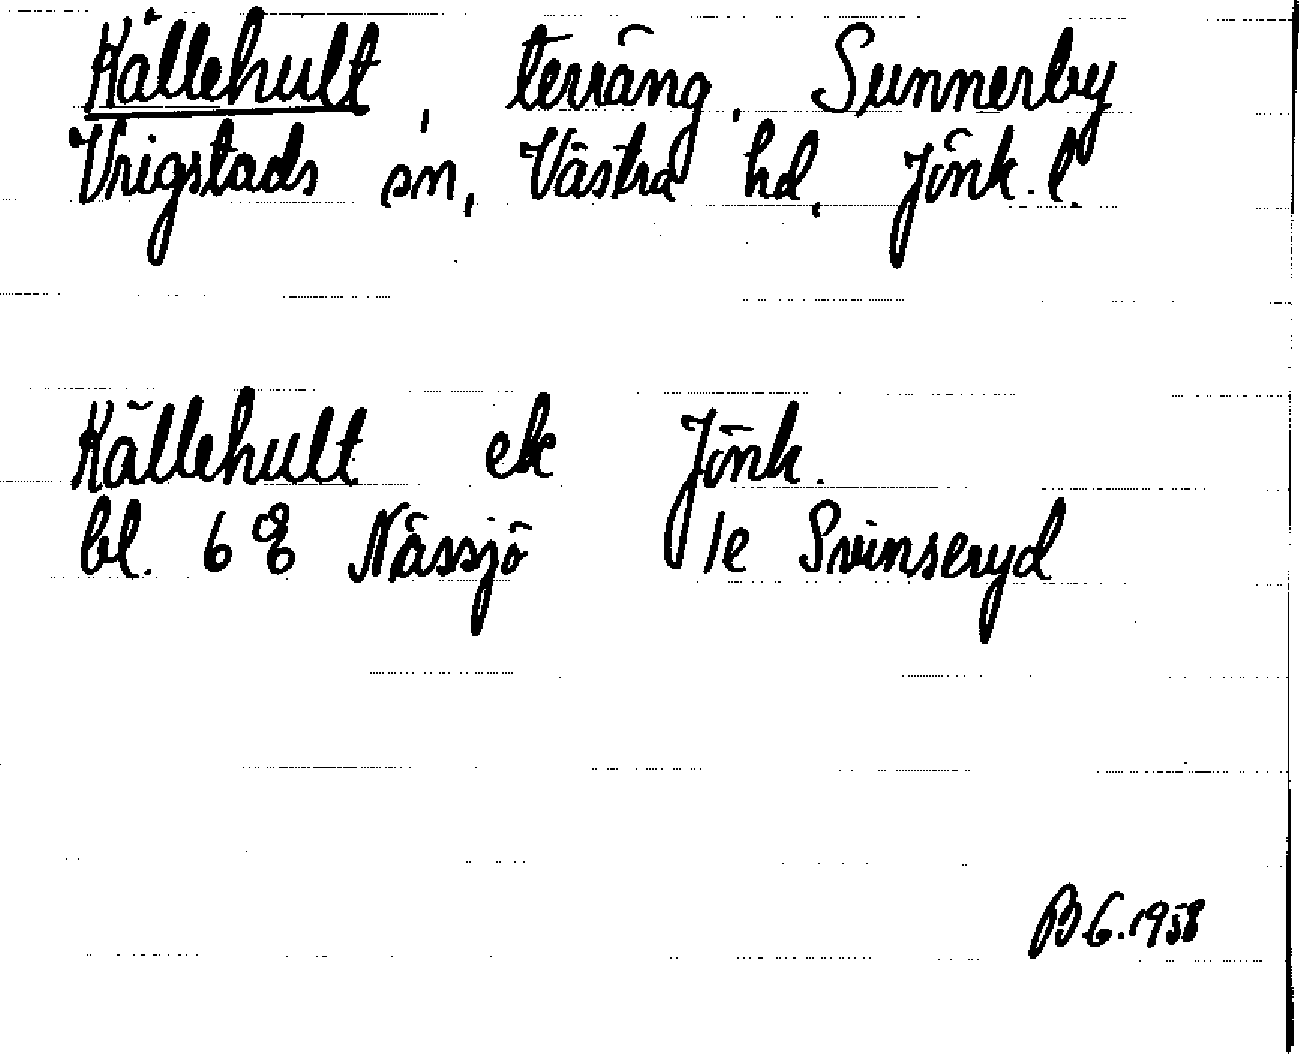 Källehult, terräng, Sunnerby
Vrigstads sn, Västra hd, Jönk. l.
Källehult ek Jönk.
bl. 6 E Nässjö 1e Svenseryd
BG. 1958